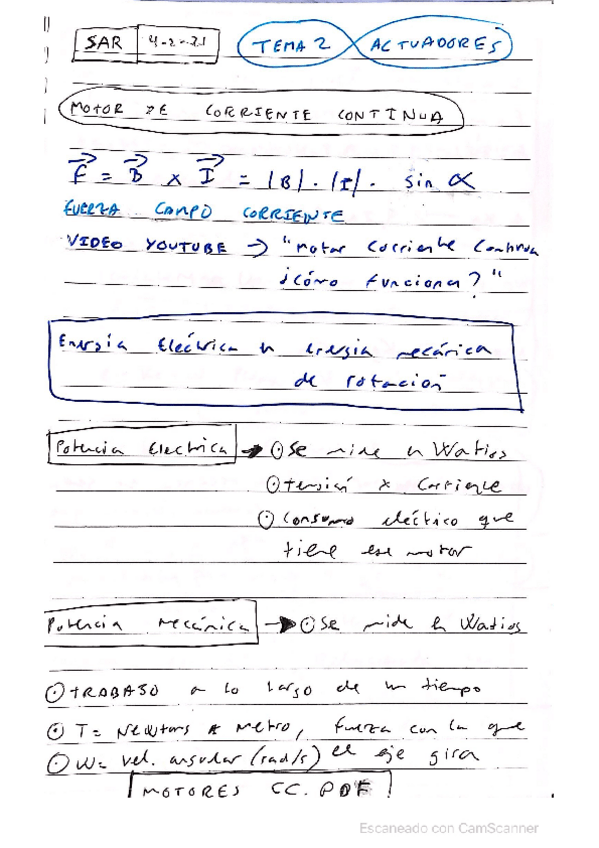 SAR 4-2-21 TEMA 2 ACTUADORES
MOTOR DE CORRIENTE CONTINUA
F = B x I = |B| · |I| · sin α
FUERZA CAMPO CORRIENTE
VIDEO YOUTUBE → "Motor Corriente Continua
¿Cómo funciona?"
Energía Eléctrica en energia mecánica
de rotación
Potencia Electrica → ⊙ Se mide en Watios
⊙ tensión x Corriente
⊙ Consumo eléctrico que
tiene ese motor
Potencia Mecánica → ⊙ Se mide en Watios
⊙ TRABAJO a lo largo de un tiempo
⊙ T = Newtons * Metro, fuerza con la que
⊙ W = vel. angular (rad/s) el eje gira
MOTORES CC.PDF
Escaneado con CamScanner